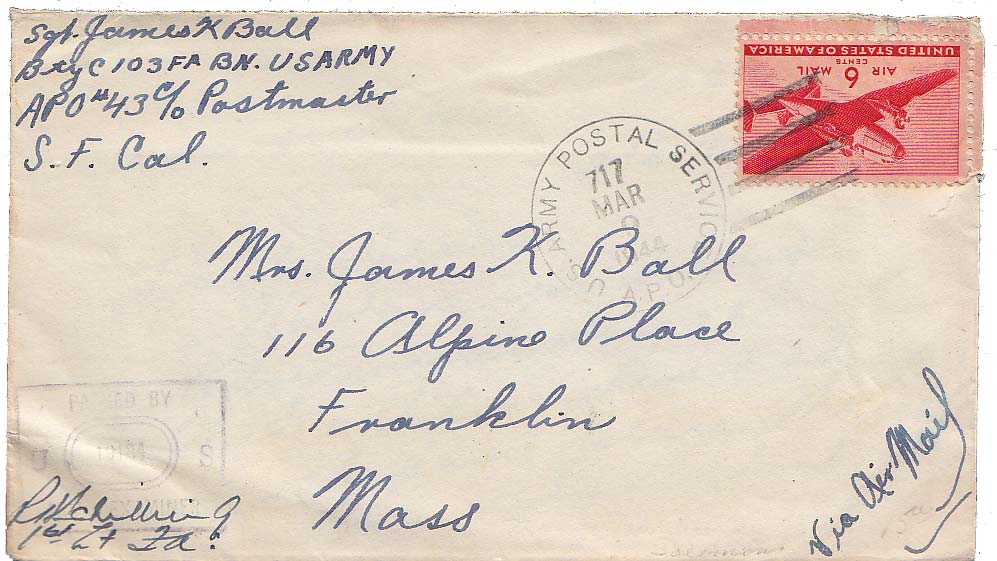 Sgt. James K Ball
Btry C 103 FA BN. US ARMY
APO #43 c/o Postmaster
S. F. Cal.
UNITED STATES OF AMERICA
AIR MAIL
6
CENTS
ARMY POSTAL SERVICE
717
MAR
9
1944
U.S. A.P.O.
Mrs. James K. Ball
116 Alpine Place
Franklin
Mass
Via Air Mail
BY
U S
1st Lt Fa.